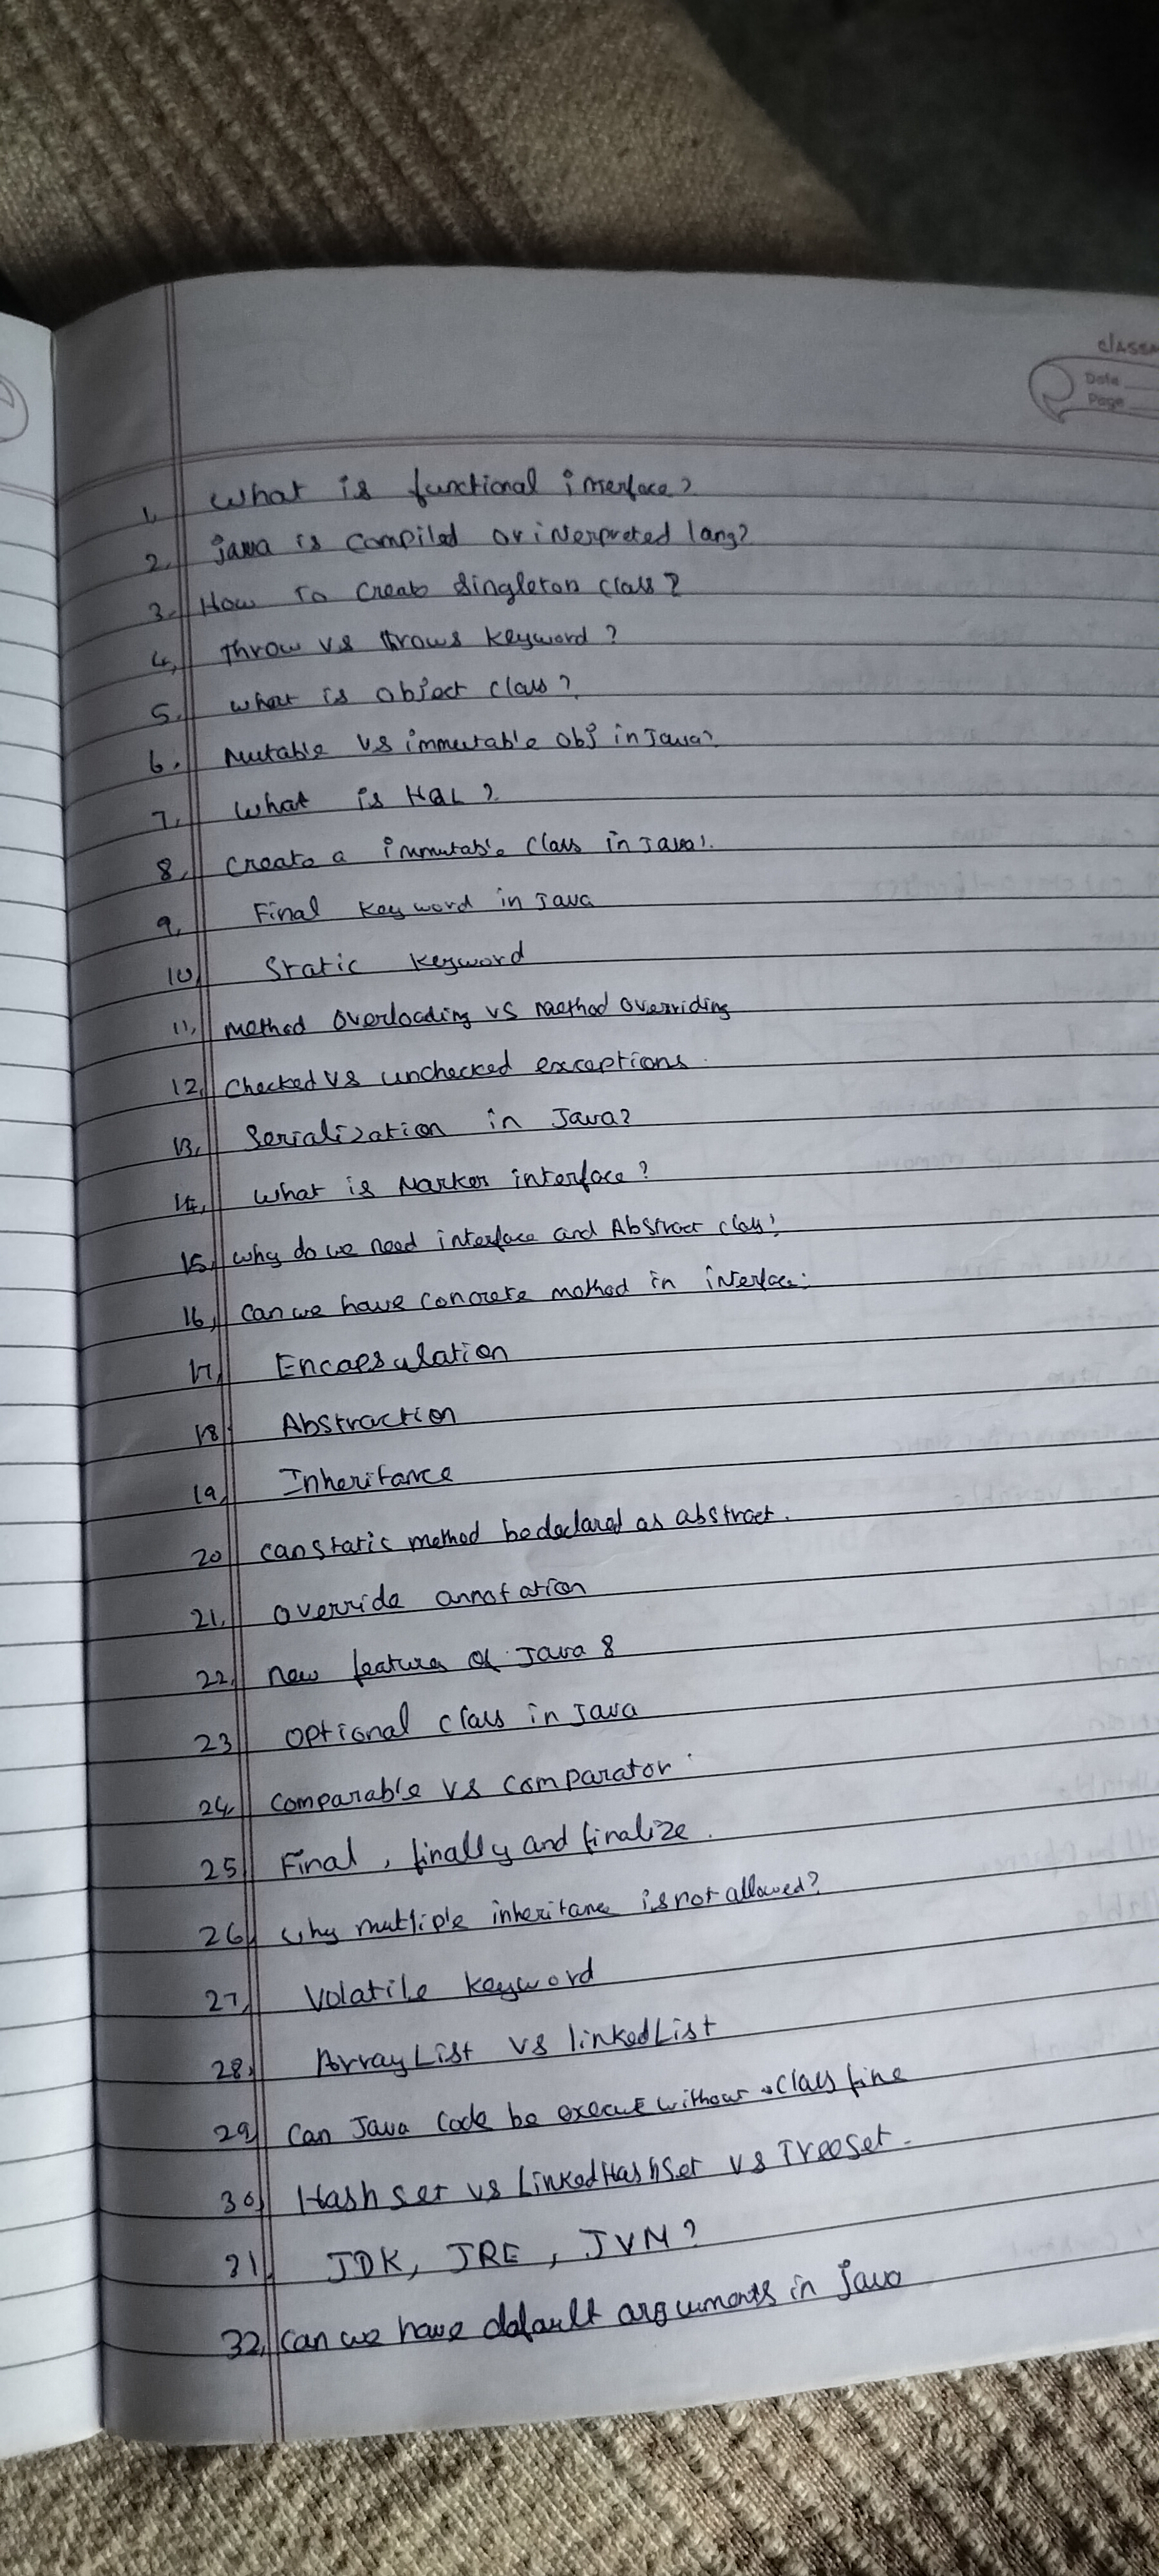 classm
Date
Page
1. What is functional interface?
2. java is compiled or interpreted lang?
3. How to create singleton class?
4. Throw vs throws keyword?
5. what is object class?
6. Mutable vs immutable obj in Java?
7. What is HQL?
8. create a immutable class in Java?
9. Final keyword in Java
10. Static keyword
11. method overloading vs method overriding
12. checked vs unchecked exceptions.
13. Serialization in Java?
14. What is Marker interface?
15. why do we need interface and Abstract class?
16. can we have concrete method in interface.
17. Encapsulation
18. Abstraction
19. Inheritance
20. can static method be declared as abstract.
21. override annotation
22. new features of Java 8
23. optional class in Java
24. comparable vs comparator.
25. Final, finally and finalize.
26. why multiple inheritance is not allowed?
27. Volatile keyword
28. ArrayList vs linkedList
29. Can Java code be execute without .class fine
30. Hashset vs LinkedHashSet vs TreeSet.
31. JDK, JRE, JVM?
32. can we have default arguments in java